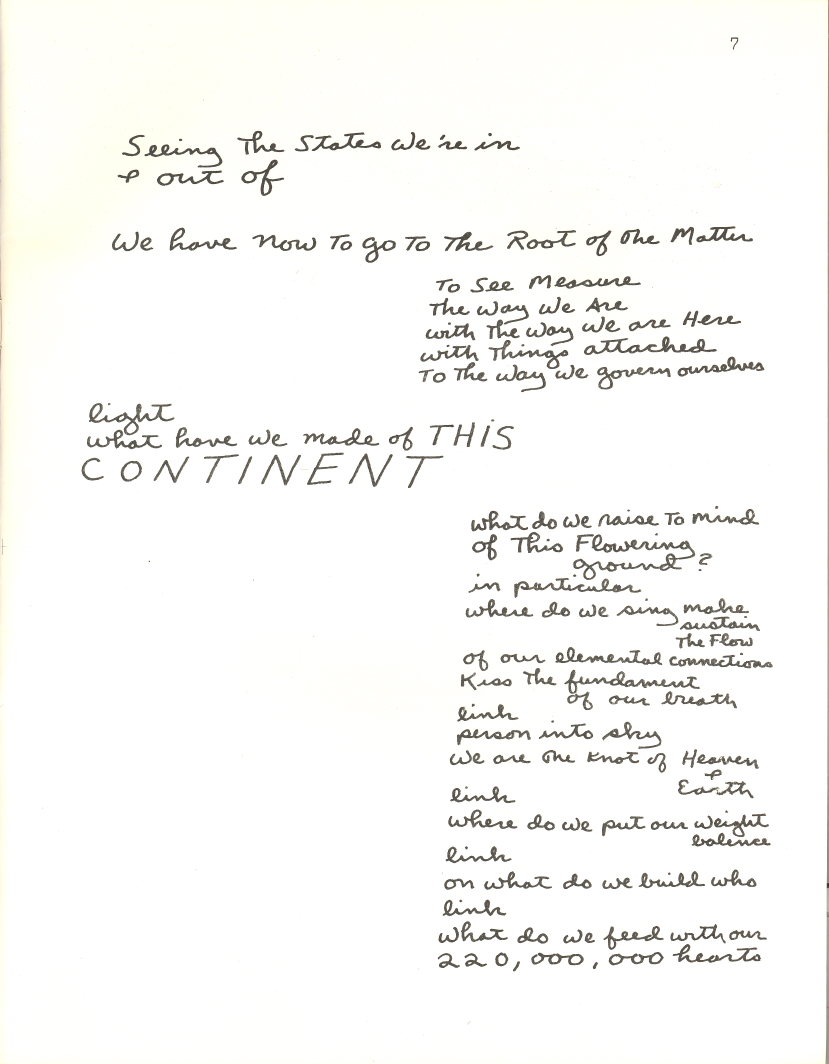 7
Seeing The States We're in
& out of
We have now To go To The Root of The Matter
To See Measure
The Way We Are
with The Way We are Here
with Things attached
To The Way We govern ourselves
light
what have we made of THIS
CONTINENT
what do we raise To mind
of This Flowering
ground?
in particular
where do we sing make
sustain
The Flow
of our elemental connections
Kiss The fundament
of our breath
link
person into sky
We are The Knot of Heaven
&
Earth
link
where do we put our weight
balence
link
on what do we build who
link
what do we feed with our
220,000,000 hearts